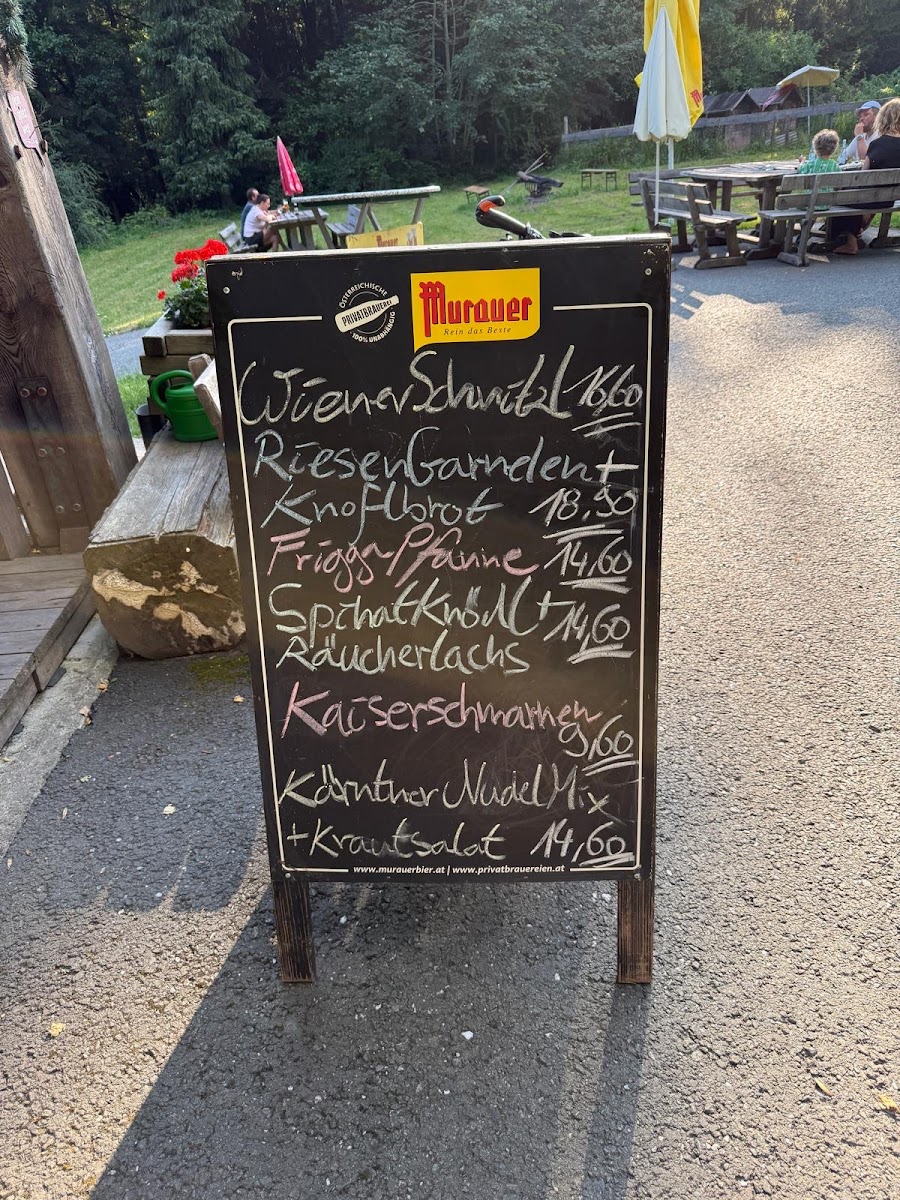 ÖSTERREICHISCHE
PRIVATBRAUEREI
100% UNABHÄNGIG
Murauer
Rein das Beste
Wiener Schnitzl 16,60
RiesenGarnelen +
Knoflbrot 18,90
Frigga Pfanne 14,60
SpinatKnödl + 14,60
Räucherlachs
Kaiserschmarren
9,60
Kärntner Nudel Mix
+ Krautsalat 14,60
www.murauerbier.at | www.privatbrauereien.at